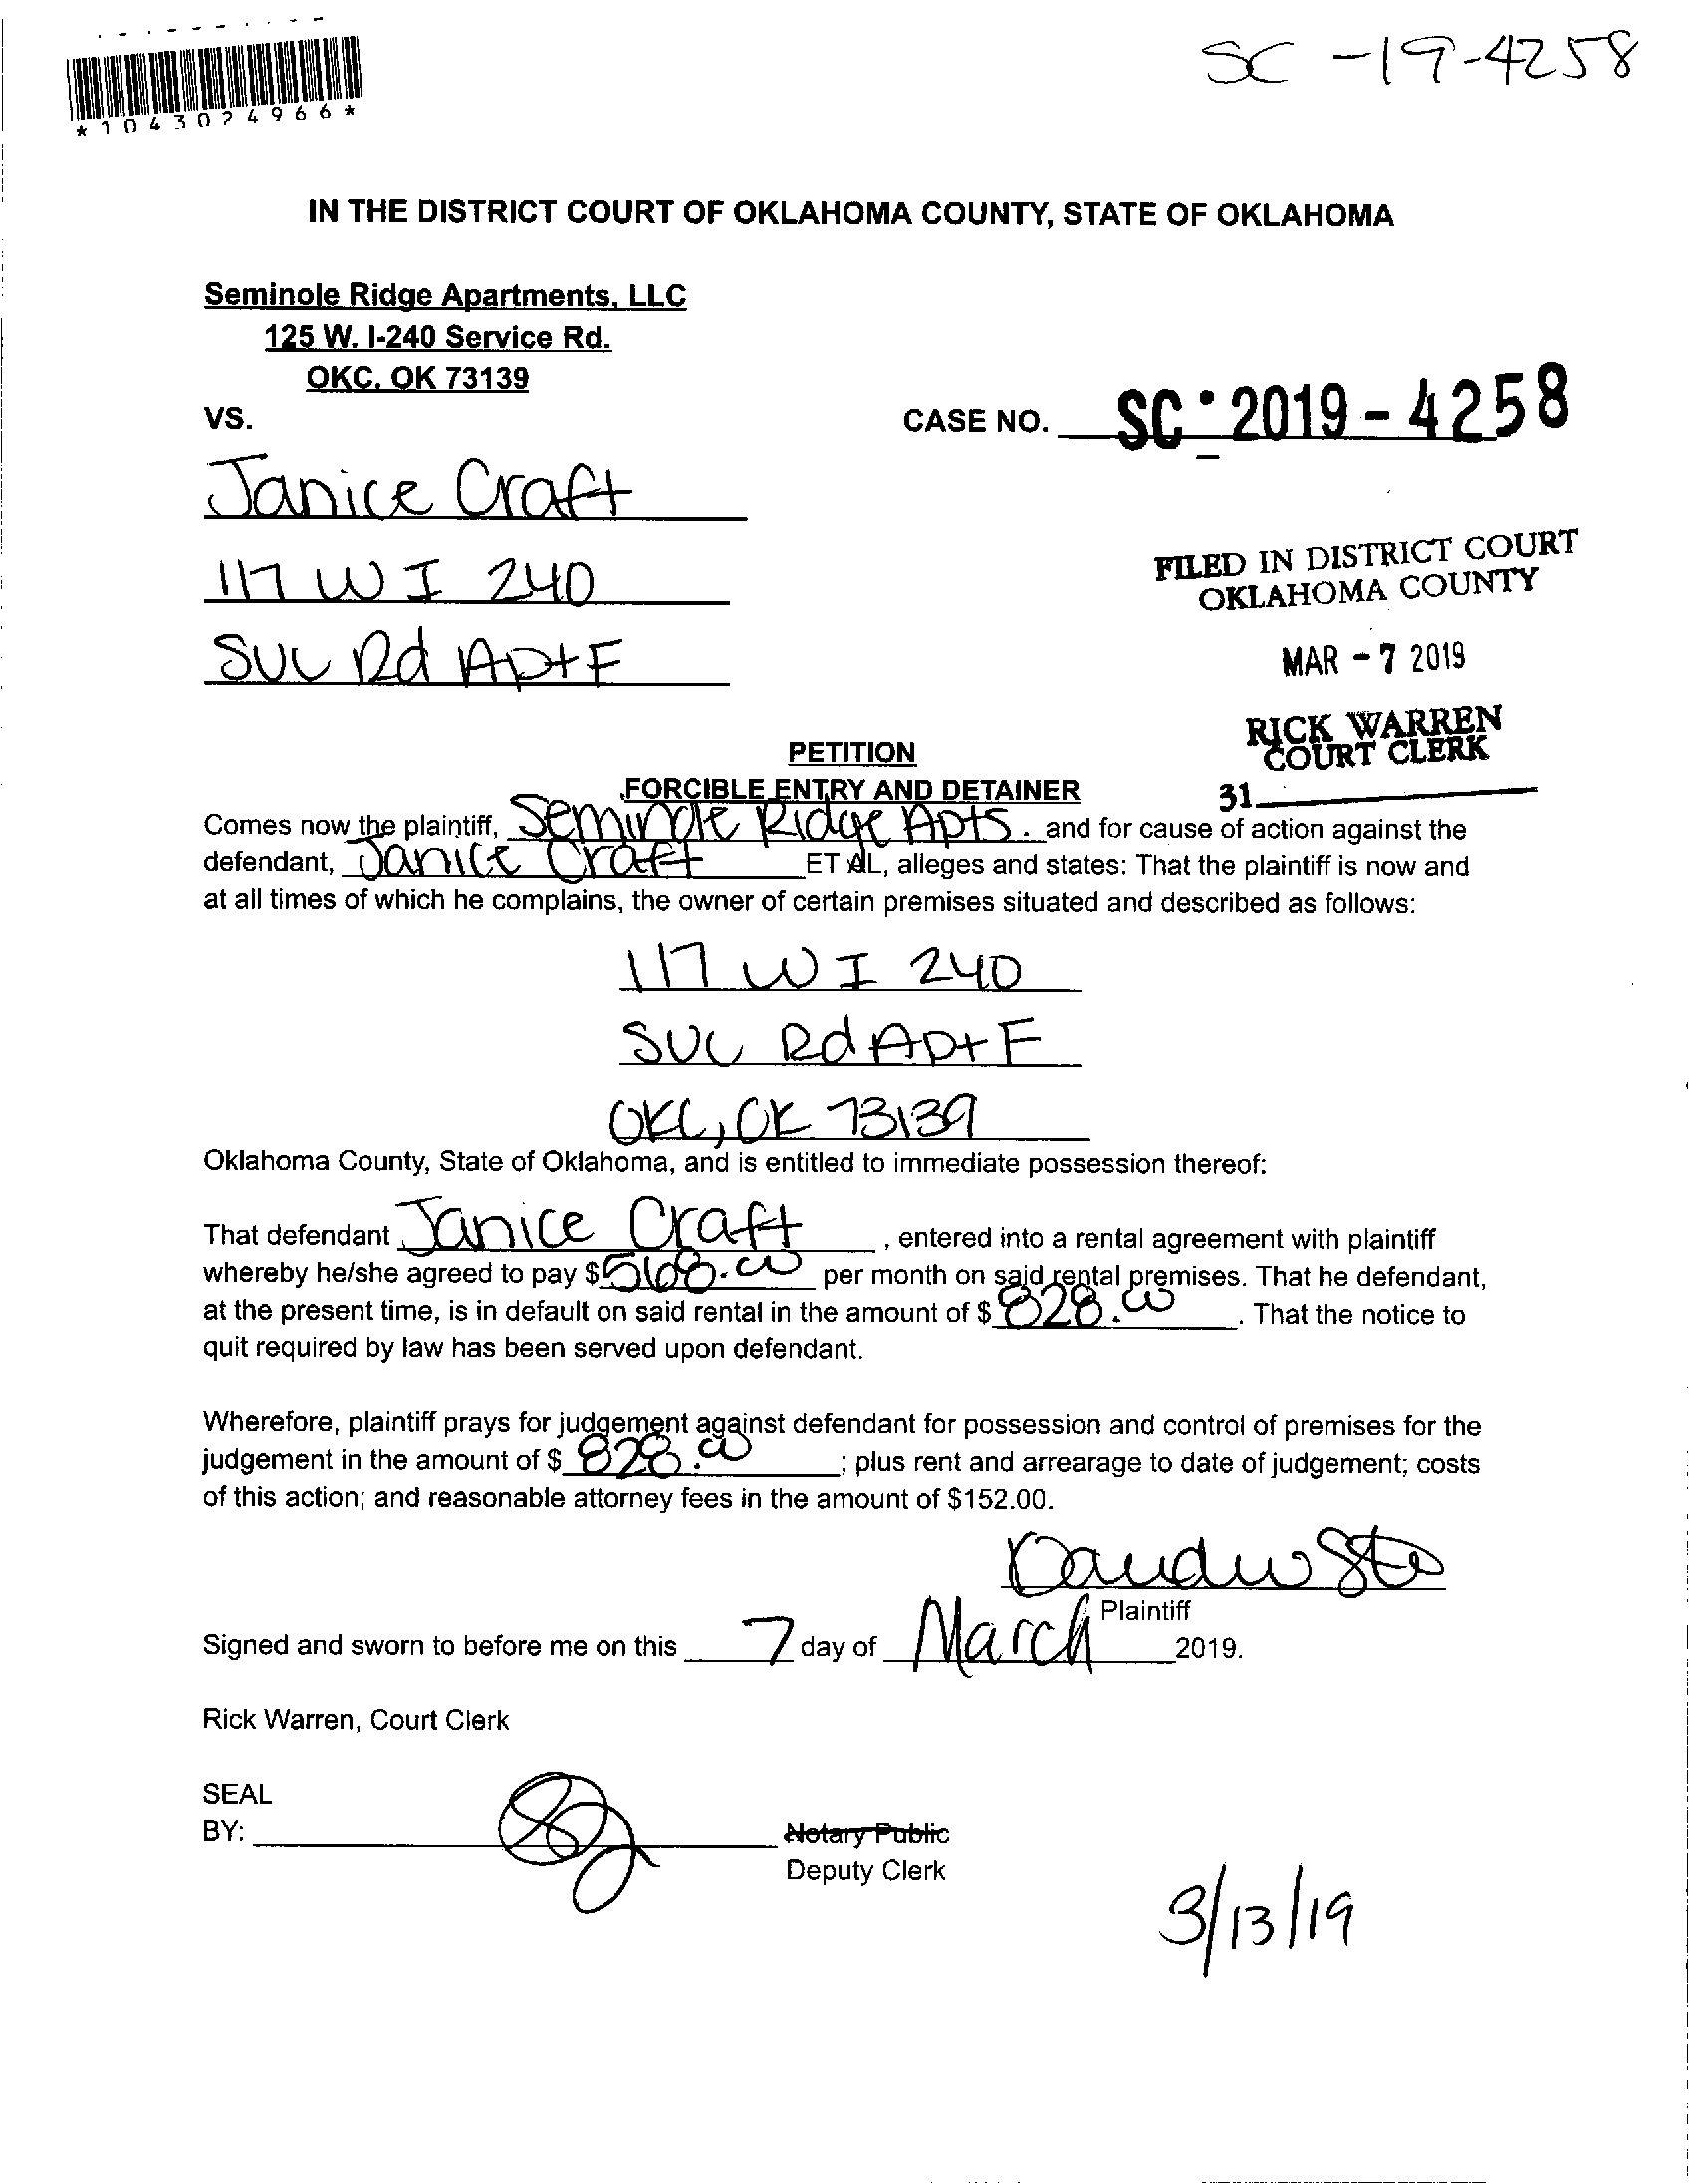 SC-19-4258
*1043024966*
IN THE DISTRICT COURT OF OKLAHOMA COUNTY, STATE OF OKLAHOMA
Seminole Ridge Apartments, LLC
125 W. I-240 Service Rd.
OKC, OK 73139
VS.
CASE NO. SC-2019-4258
Janice Craft
117 W I 240
SVC Rd Apt F
FILED IN DISTRICT COURT
OKLAHOMA COUNTY
MAR - 7 2019
RICK WARREN
COURT CLERK
31
PETITION
FORCIBLE ENTRY AND DETAINER
Comes now the plaintiff, Seminole Ridge Apts. and for cause of action against the
defendant, Janice Craft ET AL, alleges and states: That the plaintiff is now and
at all times of which he complains, the owner of certain premises situated and described as follows:
117 W I 240
SVC Rd Apt F
OKC, OK 73139
Oklahoma County, State of Oklahoma, and is entitled to immediate possession thereof:
That defendant Janice Craft, entered into a rental agreement with plaintiff
whereby he/she agreed to pay $568.00 per month on said rental premises. That he defendant,
at the present time, is in default on said rental in the amount of $828.00. That the notice to
quit required by law has been served upon defendant.
Wherefore, plaintiff prays for judgement against defendant for possession and control of premises for the
judgement in the amount of $828.00; plus rent and arrearage to date of judgement; costs
of this action; and reasonable attorney fees in the amount of $152.00.
Plaintiff
Signed and sworn to before me on this 7 day of March 2019.
Rick Warren, Court Clerk
SEAL
BY:
Notary Public
Deputy Clerk
3/13/19